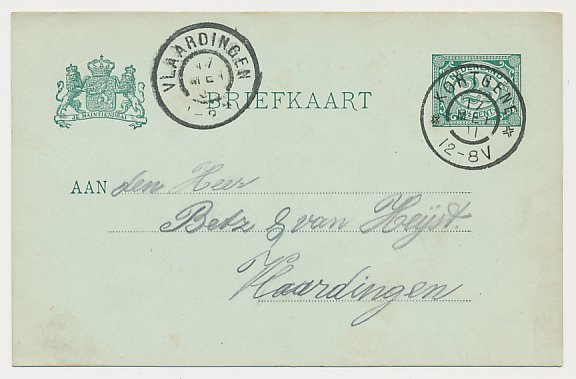 VLAARDINGEN
17
MEI
NEDERLAND
CENT
KORTGENE
17
MEI
11
12-8V
JE MAINTIENDRAI
BRIEFKAART
AAN den Heer
Betz & van Heijst.
Vlaardingen